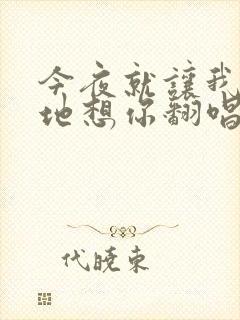 今夜就讓我
地想你翻唱
代曉東